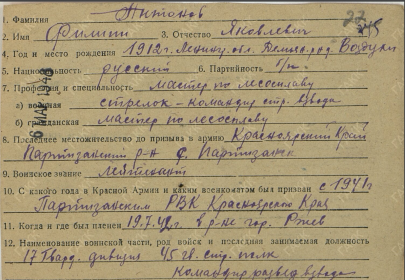 27
1. Фамилия Антонов
2. Имя Филипп 3. Отчество Яковлевич
4. Год и место рождения 1912 г. Ленингр. обл.
5. Национальность русский 6. Партийность б/п
7. Профессия и специальность мастер по лесосплаву
а) военная стрелок – командир стр. взвода
б) гражданская мастер по лесосплаву
8. Последнее местожительство до призыва в армию Красноярский Край
Партизанский р-н с. Партизанск
9. Воинское звание Лейтенант
10. С какого года в Красной Армии и каким военкоматом был призван с 1941 г
Партизанским РВК Красноярского Края
11. Когда и где был пленен 19.7.42 г. в р-не гор. Ржев
12. Наименование воинской части, род войск и последняя занимаемая должность
17 Гвард. дивизия 45 гв. стр. полк
Командир развед взвода